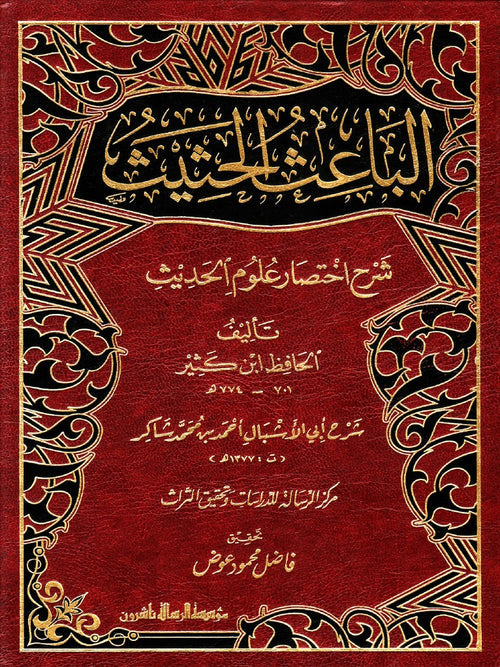 الباعث الحثيث
شرح اختصار علوم الحديث
تأليف
الحافظ ابن كثير
٧٠١ - ٧٧٤ هـ
شرح أبي الأشبال أحمد بن محمد شاكر
( ت : ١٣٧٧ هـ )
مركز الرسالة للدراسات وتحقيق التراث
تحقيق
فاضل محمود عوض
مؤسسة الرسالة ناشرون